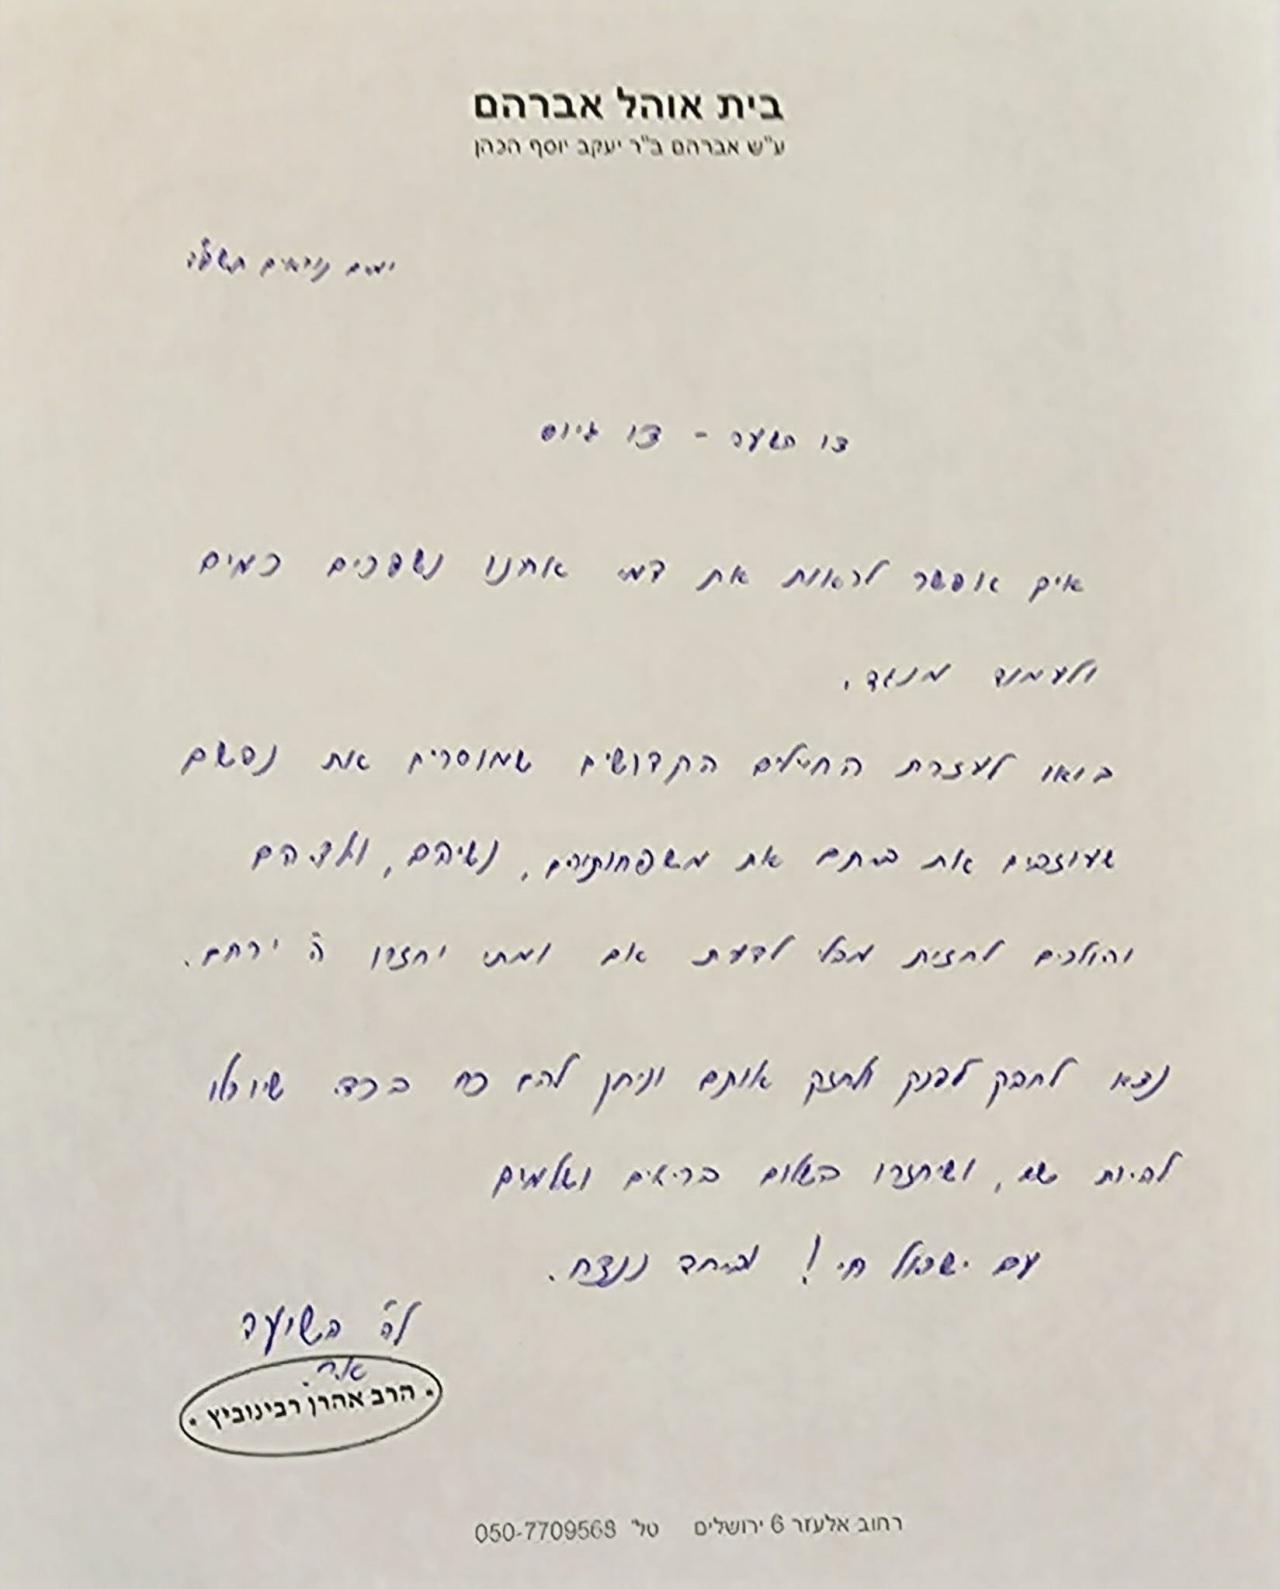 בית אוהל אברהם
ע"ש אברהם ב"ר יעקב יוסף הכהן
ימים נוראים תשפ"ה
צו השעה - צו גיוס
איך אפשר לראות את דמי אחנו נשפכים כמים
ולעמוד מנגד.
בואו לעזרת החיילים הקדושים שמוסרים את נפשם
שעוזבים את ביתם את משפחותיהם, נשיהם, ילדיהם
והולכים לחזית מבלי לדעת אם ומתי יחזרו ה' ירחם.
נצא לחבק לפנק לחזק אותם וניתן להם כח בכדי שיוכלו
להיות שם, ושיחזרו בשלום בריאים ושלמים
עם ישראל חי! וביחד ננצח.
לה' הישועה
א.ר.
הרב אהרן רבינוביץ
רחוב אלעזר 6 ירושלים טל' 050-7709568